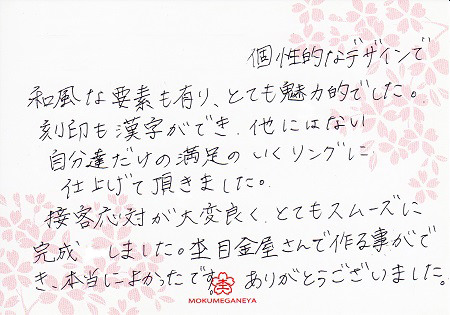 個性的なデザインで
和風な要素も有り、とても魅力的でした。
刻印も漢字ができ、他にはない
自分達だけの満足のいくリングに
仕上げて頂きました。
接客応対が大変良く、とてもスムーズに
完成 しました。杢目金屋さんで作る事がで
き、本当によかったです。ありがとうございました。
MOKUMEGANEYA